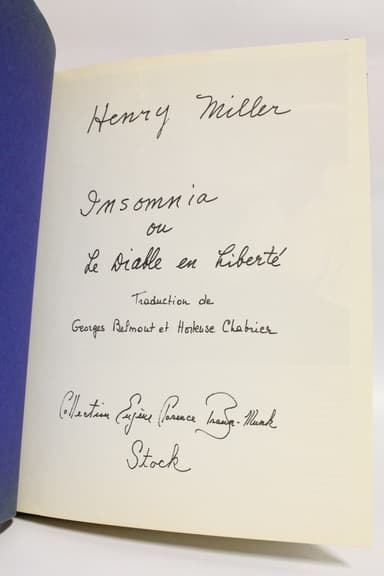 Henry Miller
Insomnia
ou
Le Diable en Liberté
Traduction de
Georges Belmont et Hortense Chabrier
Collection Eugène Braun-Munk
Stock